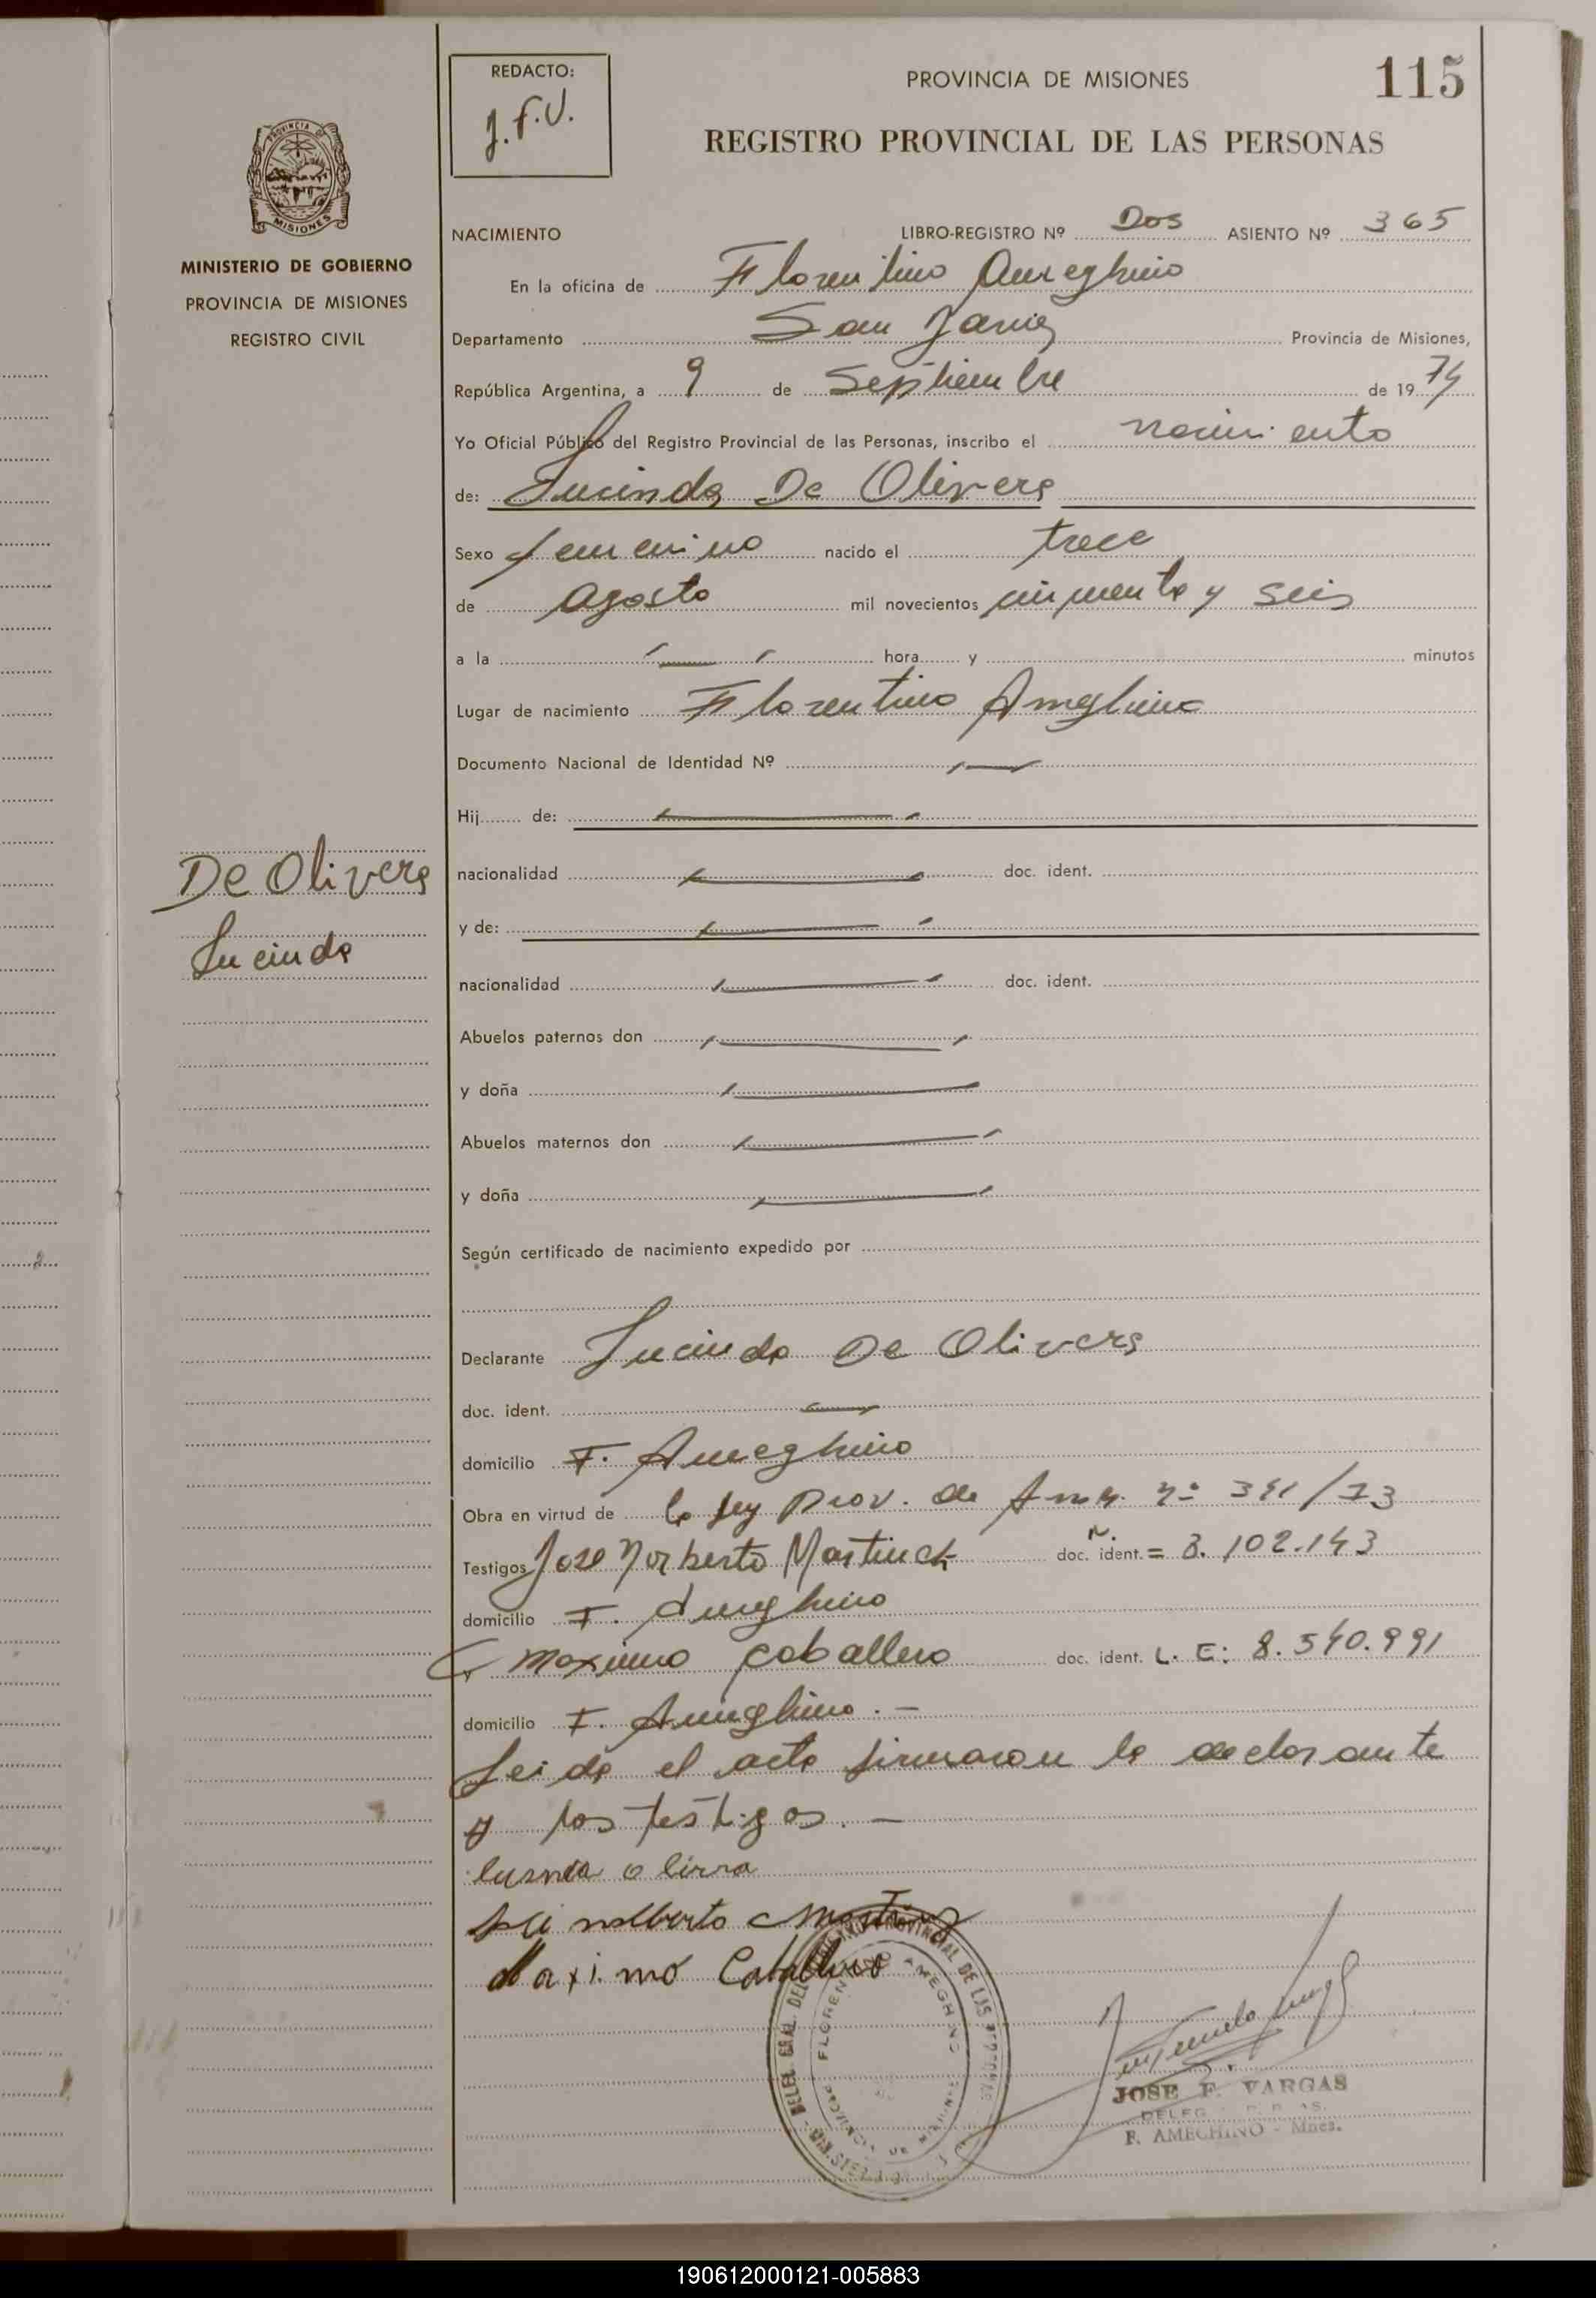 REDACTO:
J.F.V.
PROVINCIA DE MISIONES
115
REGISTRO PROVINCIAL DE LAS PERSONAS
PROVINCIA DE
MISIONES
MINISTERIO DE GOBIERNO
PROVINCIA DE MISIONES
REGISTRO CIVIL
NACIMIENTO LIBRO-REGISTRO Nº Dos ASIENTO Nº 365
En la oficina de Florentino Ameghino
Departamento San Javier Provincia de Misiones,
República Argentina, a 9 de Septiembre de 1974
Yo Oficial Público del Registro Provincial de las Personas, inscribo el nacimiento
de: Lucinda De Olivera
Sexo femenino nacido el trece
de agosto mil novecientos cincuenta y seis
a la hora y minutos
Lugar de nacimiento Florentino Ameghino
Documento Nacional de Identidad Nº
Hij de:
De Olivera
Lucinda
nacionalidad doc. ident.
y de:
nacionalidad doc. ident.
Abuelos paternos don
y doña
Abuelos maternos don
y doña
Según certificado de nacimiento expedido por
Declarante Lucinda De Olivera
doc. ident.
domicilio F. Ameghino
Obra en virtud de la ley Prov. de Amn. nº
Testigos Jose Norberto doc. ident. = 8.102.143
domicilio F. Ameghino
y Maximo Caballero doc. ident. L. E: 8.540.991
domicilio F. Ameghino. -
Leida el acta firmaron la declarante
y los testigos. -
o livra
Maximo Caballero
FLORENTINO AMEGHINO
JOSE F. VARGAS
F. AMEGHINO - Mnes.
190612000121-005883